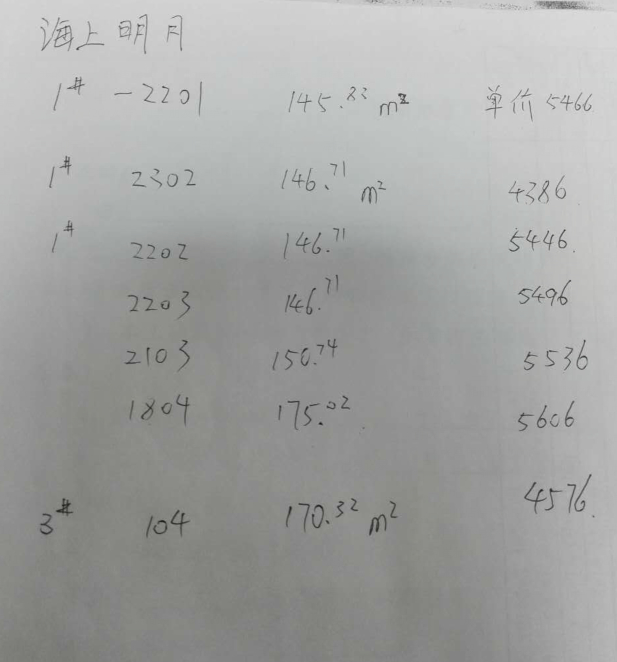 海上明月
1# -2201 145.83 m² 单价 5466
1# 2302 146.71 m² 4386
1# 2202 146.71 5446.
2203 146.71 5496
2103 150.74 5536
1804 175.02 5606
3# 104 170.32 m² 4576.